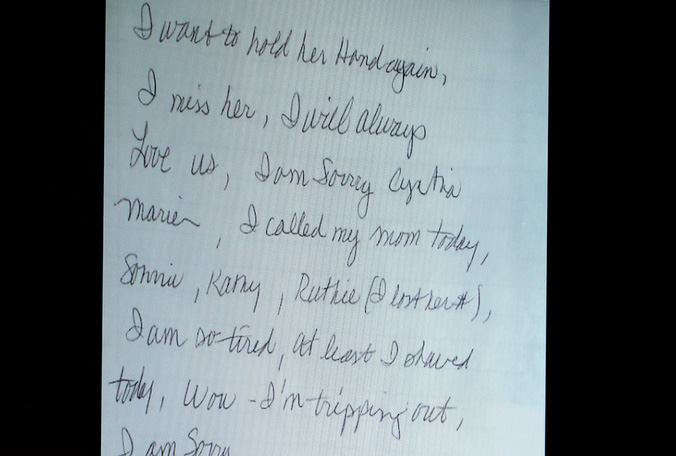 I want to hold her Hand again,
I miss her, I will always
Love us, I am Sorry Cynthia
Marie , I called my mom today,
Sonnie , Kathy , Ruthie (I lost her #),
I am so tired, at least I shaved
today, Wow - I'm tripping out,
I am Sorry